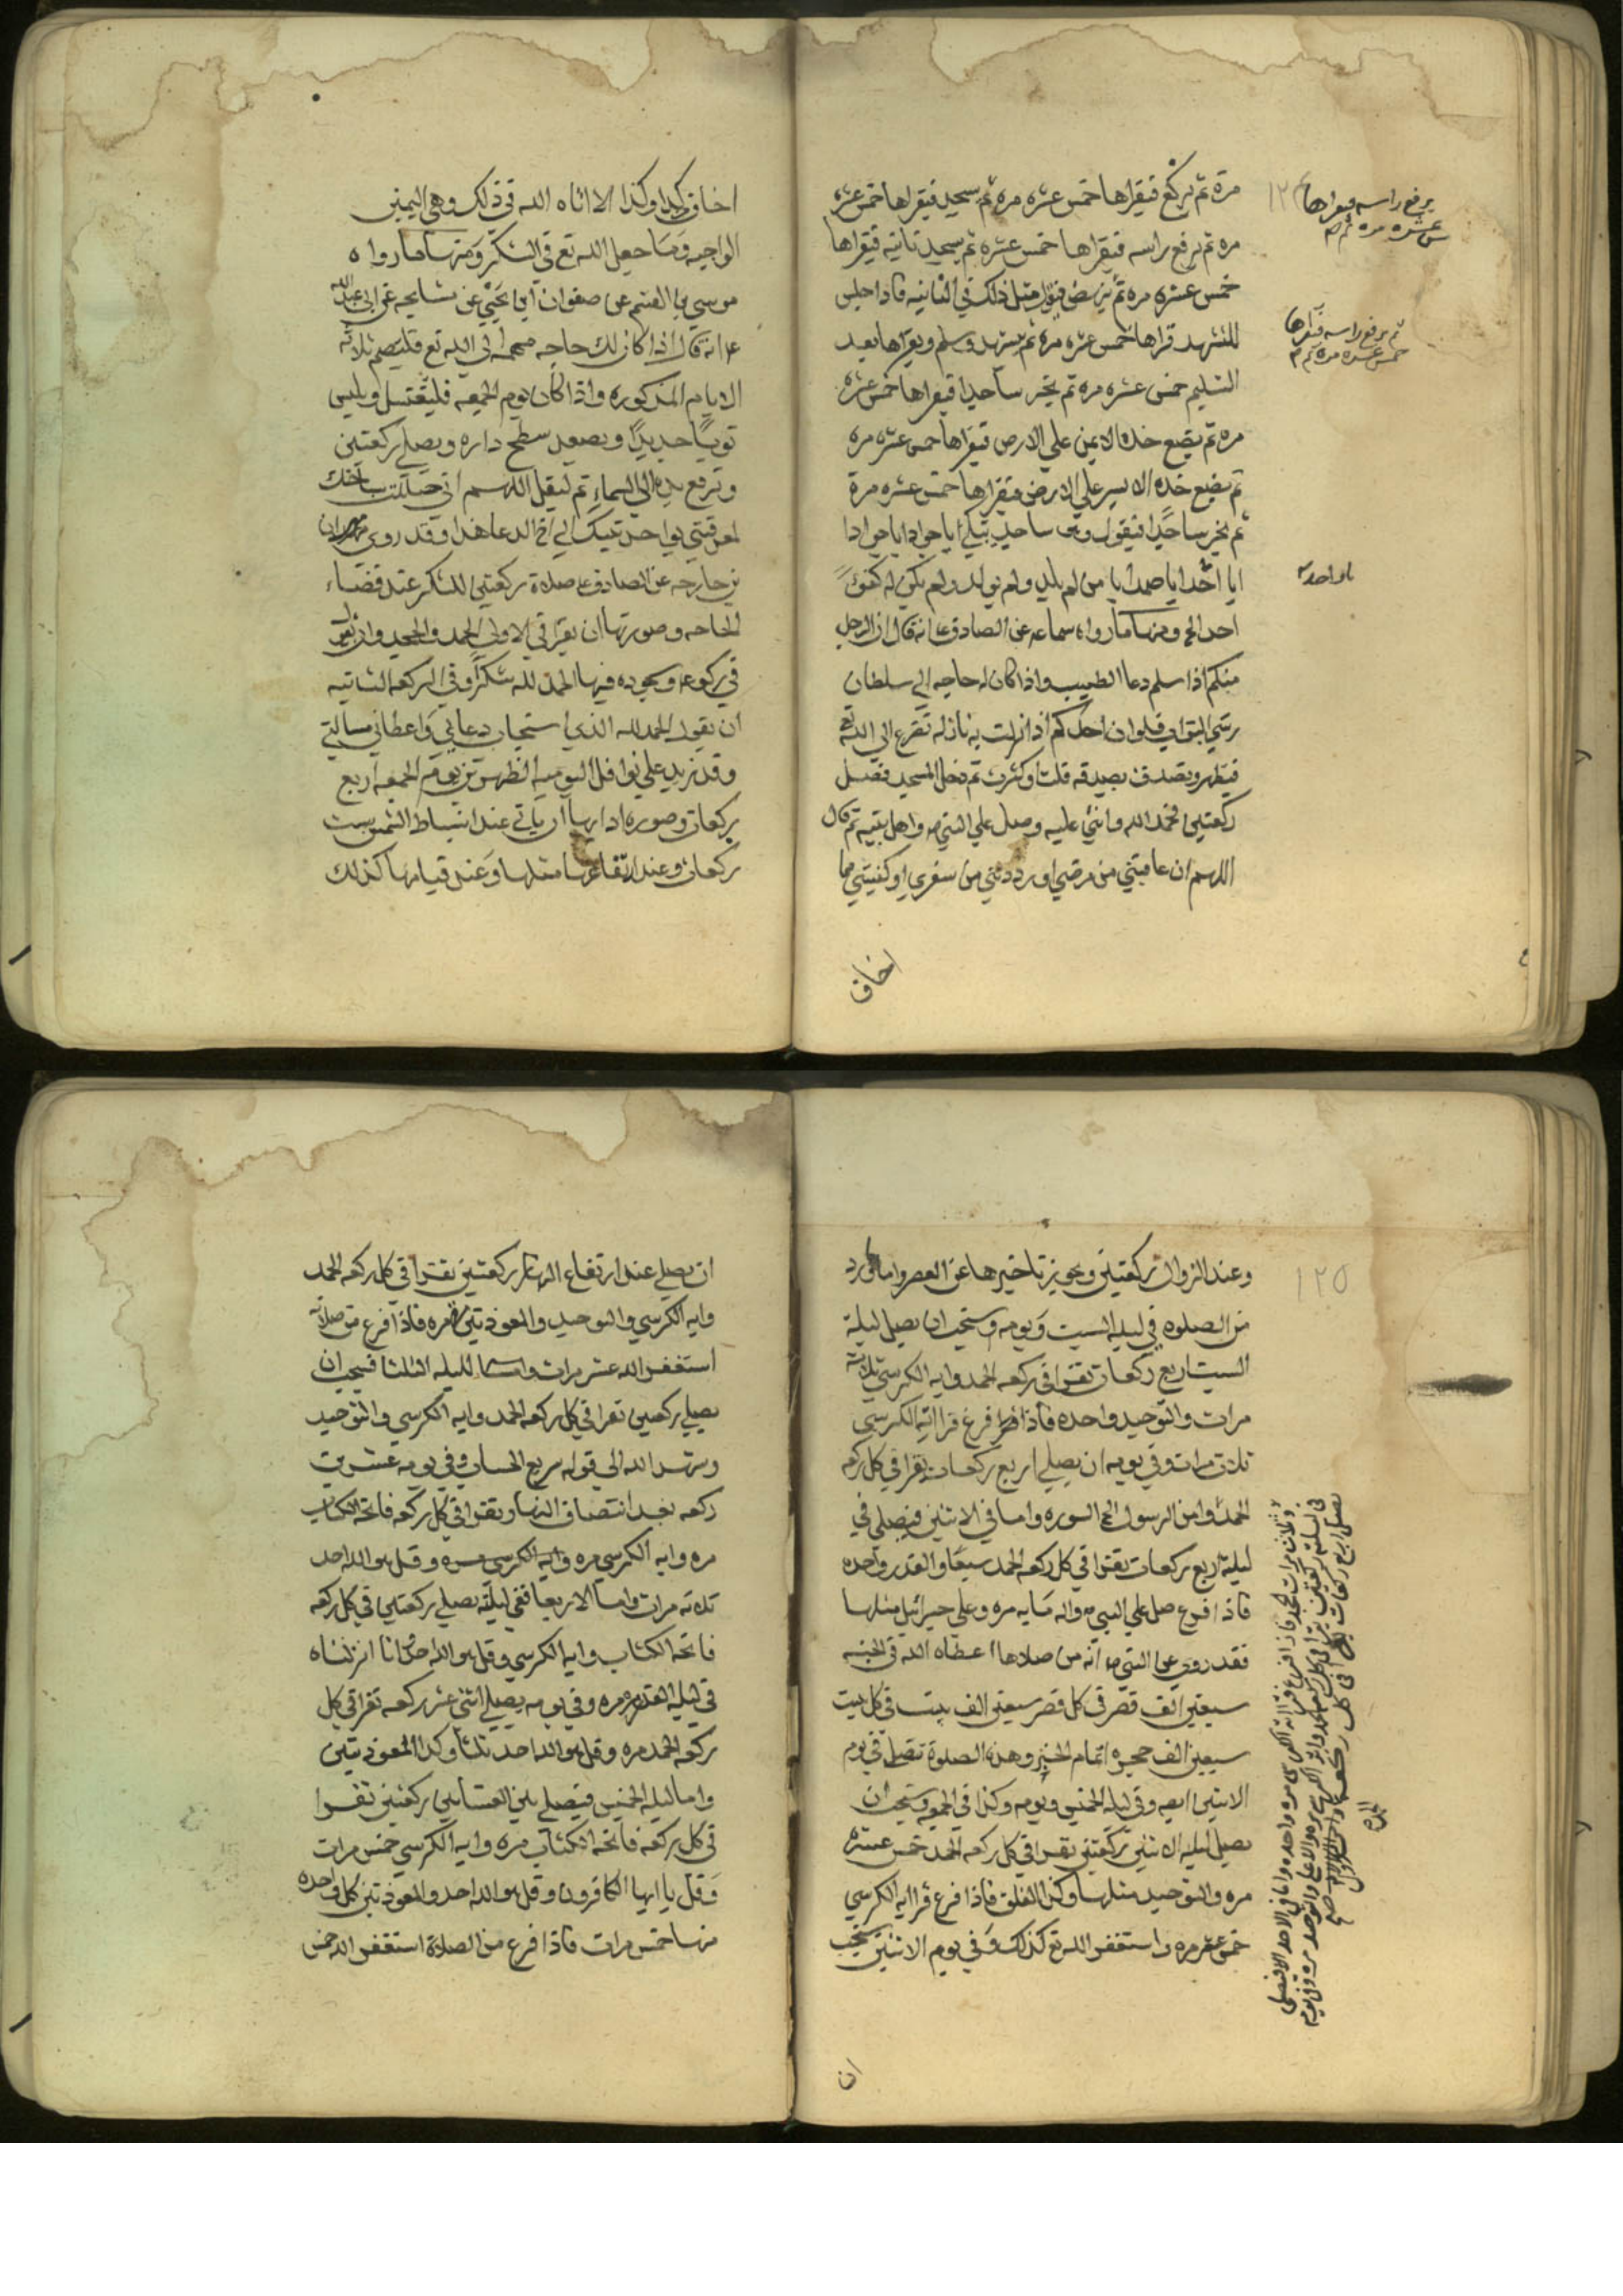 مرة ثم يركع فيقراها خمس عشره مره ثم يسجد فيقراها خمس عشره
مره ثم يرفع راسه فيقراها خمس عشره ثم يسجد ثانيه فيقراها
خمس عشره مره ثم ينهض فيقول مثل ذلك في الثانيه فاذا جلس
للتشهد قراها خمس عشره مره ثم يتشهد ويسلم ويقراها بعد
التسليم خمس عشره مره ثم يخر ساجدا فيقراها خمس عشره
مره ثم يضع خده الايمن علي الارض فيقراها خمس عشره مره
ثم يضع خده الايسر علي الارض فيقراها خمس عشره مرة
ثم يخر ساجدا فيقول وهو ساجد يبكي يا جواد يا جواد
يا احد يا صمد يا من لم يلد ولم يولد ولم يكن له كفوا
احد الخ ومنها ما رواه سماعه عن الصادق ع انه قال ان الرجل
منكم اذا سلم دعا الطبيب واذا كان له حاجه الي سلطان
رشي البواب فلو ان احدكم اذا نزلت به نازله تفزع الي الله تع
فتطهر وتصدق بصدقه قلت او كثرت ثم دخل المسجد فصلي
ركعتين فحمد الله واثني عليه وصلي علي النبي ص واهل بيته ثم قال
اللهم ان عافيتني من مرضي او رددتني من سفري او كفيتني مما
اخاف
يرفع راسه فيقراها
عشره مره ثم
ثم يرفع راسه فيقراها
خمس عشره مره ثم
يا واحد
١٢٤
اخاف كذا وكذا الا اتاه الله في ذلك وهي اليمين
الواجبه وما جعل الله تع في الشكر ومنها ما رواه
موسي بن القسم عن صفوان ابن يحيي عن مشايخه عن ابي عبدالله
ع انه قال اذا كان لك حاجه مهمه الي الله تع فليصم ثلاثه
الايام المذكوره واذا كان يوم الجمعه فليغتسل ويلبس
ثوبا جديدا ويصعد سطح داره ويصلي ركعتين
وترفع يده الي السماء ثم ليقل اللهم اني حللت بساحتك
لمعرفتي بواحدنيتك الي اخر الدعا هذا وقد روي هرون
بن خارجه عن الصادق ع صلاة ركعتين للشكر عند قضاء
الحاجه وصورتها ان يقرا في الاولي الحمد والجحد وان يقول
في ركوعه وسجوده فيها الحمد لله شكرا وفي الركعه الثانيه
ان يقول الحمد لله الذي استجاب دعايي واعطاني مسالتي
وقد نزيد علي نوافل اليوميه الظهرين يوم الجمعه اربع
ركعات وصوره ادايها ان ياتي عند انبساط الشمس بست
ركعات وعند ارتفاعها مثلها وعند قيامها كذلك
وعند الزوال ركعتين ويجوز تاخيرها عن العصر واما ما ورد
من الصلوه في ليله السبت ويومه ويستحب ان يصلي ليلة
السبت اربع ركعات تقرا في ركعه الحمد وايه الكرسي ثلاثه
مرات والتوحيد واحده فاذا فرغ قرا ايه الكرسي
ثلاث مرات وفي يومه ان يصلي اربع ركعات يقرا في كل ركعه
الحمد وامن الرسول الخ السوره واما في الاثنين فيصلي في
ليلة اربع ركعات يقرا في كل ركعه الحمد سبعا والقدر واحده
فاذا فرغ صلي علي النبي ص واله مايه مره وعلي جبرائيل مثلها
فقد روي عن النبي ص انه من صلاها اعطاه الله في الجنه
سبعين الف قصر في كل قصر سبعين الف بيت في كل بيت
سبعين الف حجره اتمام الخبر وهذه الصلوة تصلي في يوم
الاثنين ايضه وفي ليله الخميس ويومه وكذا في الجمعه ويستحب ان
يصلي ليله الاثنين ركعتين يقرا في كل ركعه الحمد خمس عشره
مره والتوحيد مثلها وكذا الفلق فاذا فرغ قرا ايه الكرسي
خمس عشر مره واستغفر الله تع كذلك وفي يوم الاثنين يستحب
ان
١٢٥
ان يصلي عند ارتفاع النهار ركعتين يقرا في كل ركعه الحمد
وايه الكرسي والتوحيد والمعوذتين مره فاذا فرغ من صلاته
استغفر الله عشر مرات واما لليله الثلثا فيجب ان
يصلي ركعتين تقرا في كل ركعه الحمد وايه الكرسي والتوحيد
وشهد الله الي قوله سريع الحساب وفي يومه عشرين
ركعه بعد انتصاف النهار ويقرا في كل ركعه فاتحه الكتاب
مره وايه الكرسي مره وايه الكرسي مره وقل هو الله احد
ثلاثه مرات واما الاربعا ففي ليلته يصلي ركعتين في كل ركعه
فاتحه الكتاب وايه الكرسي وقل هو الله احد وانا انزلناه
في ليله القدر مره وفي يومه يصلي اثني عشر ركعه تقرا في كل
ركعه الحمد مره وقل هو الله احد ثلثا وكذا المعوذتين
واما ليله الخميس فيصلي بين العشايين ركعتين تقرا
في كل ركعه فاتحه الكتاب مره وايه الكرسي خمس مرات
وقل يا ايها الكافرون وقل هو الله احد والمعوذتين كل واحده
منها خمس مرات فاذا فرغ من الصلاة استغفر الله خمس